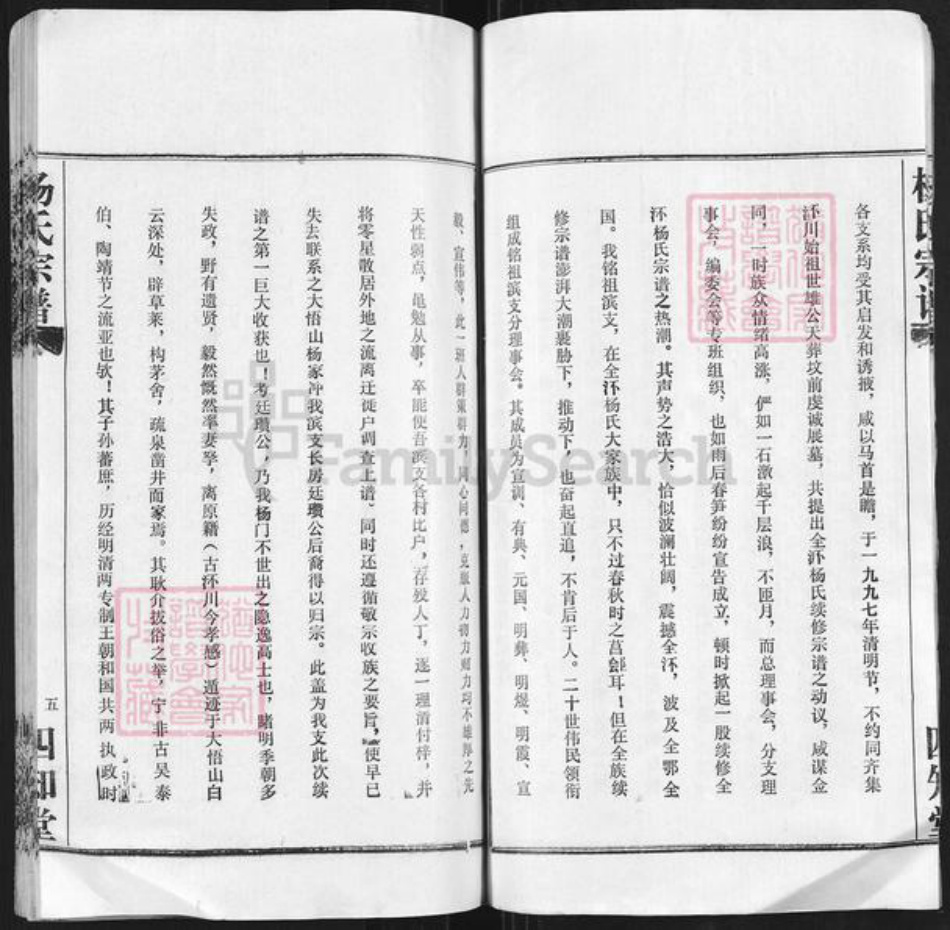 杨氏宗谱
各支系均受其启发和诱掖，咸以马首是瞻，于一九九七年清明节，不约同齐集
沔川始祖世雄公天葬坟前虔诚展墓，共提出全沔杨氏续修宗谱之动议，咸谋佥
同，一时族众情绪高涨，俨如一石激起千层浪，不匝月，而总理事会，分支理
事会，编委会等专班组织，也如雨后春笋纷纷宣告成立，顿时掀起一股续修全
沔杨氏宗谱之热潮。其声势之浩大，恰似波澜壮阔，震撼全沔，波及全鄂全
国。我铭祖滨支，在全沔杨氏大家族中，只不过春秋时之莒郐耳！但在全族续
修宗谱澎湃大潮裹胁下，推动下，也奋起直追，不肯后于人。二十世伟民领衔
组成铭祖滨支分理事会。其成员为宣训、有典、元国、明彝、明煜、明霞、宣
四知堂
毅、宣伟等，此一班人群策群力，同心同德，克服人力物力财力均不雄厚之先
天性弱点，黾勉从事，卒能使吾滨支各村比户，存殁人丁，逐一理清付梓，并
将零星散居外地之流离迁徙户调查上谱、同时还遵循敬宗收族之要旨，使早已
失去联系之大悟山杨家冲我滨支长房廷瓒公后裔得以归宗。此盖为我支此次续
谱之第一巨大收获也！考廷瓒公，乃我杨门不世出之隐逸高士也，睹明季朝多
失政，野有遗贤，毅然慨然率妻孥，离原籍（古怀川今孝感）遁迹于大悟山白
云深处，辟草莱，构茅舍，疏泉凿井而家焉。其耿介拔俗之举，宁非古吴泰
伯、陶靖节之流亚也欤！其子孙蕃庶，历经明清两专制王朝和国共两执政时
杨氏宗谱
五
四知堂
FamilySearch